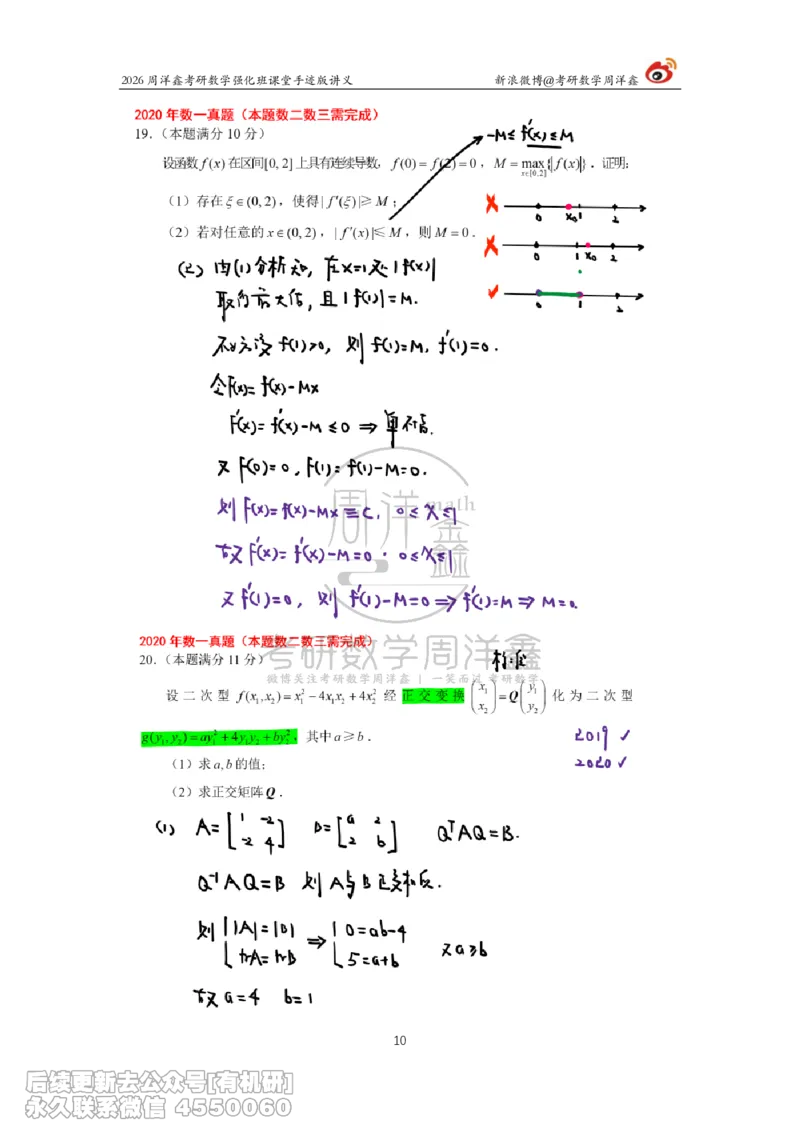 2026 周洋鑫考研数学强化班课堂手迹版讲义 新浪微博@考研数学周洋鑫
2020 年数一真题（本题数二数三需完成）
19.（本题满分 10 分）
-M≤f'(x)≤M
设函数 f(x) 在区间[0, 2] 上具有连续导数，f(0) = f(2) = 0，M = max{|f(x)|}．证明：
x∈[0,2]
（1）存在 ξ∈(0, 2)，使得| f'(ξ)|≥ M；
（2）若对任意的 x∈(0, 2)，| f'(x)|≤ M，则 M = 0．
✗ 0 x₀ 1 2
✗ 0 1 x₀ 2
✓ 0 1 2
(2) 由(1)分析知，在x=1处|f(x)|
取得最大值，且|f(1)|=M.
不妨设f(1)>0，则f(1)=M，f'(1)=0.
令F(x)=f(x)-Mx
F'(x)=f'(x)-M≤0 ⇒ 单不增.
又F(0)=0，F(1)=f(1)-M=0.
则F(x)=f(x)-Mx≡C，0≤x≤1
故F'(x)=f'(x)-M=0．0≤x≤1
又f'(1)=0，则f'(1)-M=0⇒f'(1)=M⇒M=0.
周洋鑫 math
2020 年数一真题（本题数二数三需完成）
考研数学周洋鑫
20.（本题满分 11 分）
微博关注考研数学周洋鑫 | 一笑而过 考研数学
设二次型 f(x₁,x₂) = x₁² − 4x₁x₂ + 4x₂² 经正交变换 (x₁ x₂) = Q (y₁ y₂) 化为二次型
g(y₁,y₂) = ay₁² + 4y₁y₂ + by₂²，其中 a ≥ b．
2019 ✓
（1）求 a, b 的值；
2020 ✓
（2）求正交矩阵 Q．
(1) A=[1 -2 -2 4] B=[a 2 2 b] QᵀAQ=B.
Q⁻¹AQ=B 则A与B正交相似.
则{|A|=|B| trA=trB ⇒ {0=ab-4 5=a+b 又a≥b
故a=4 b=1
10
后续更新去公众号[有机研]
永久联系微信 4550060